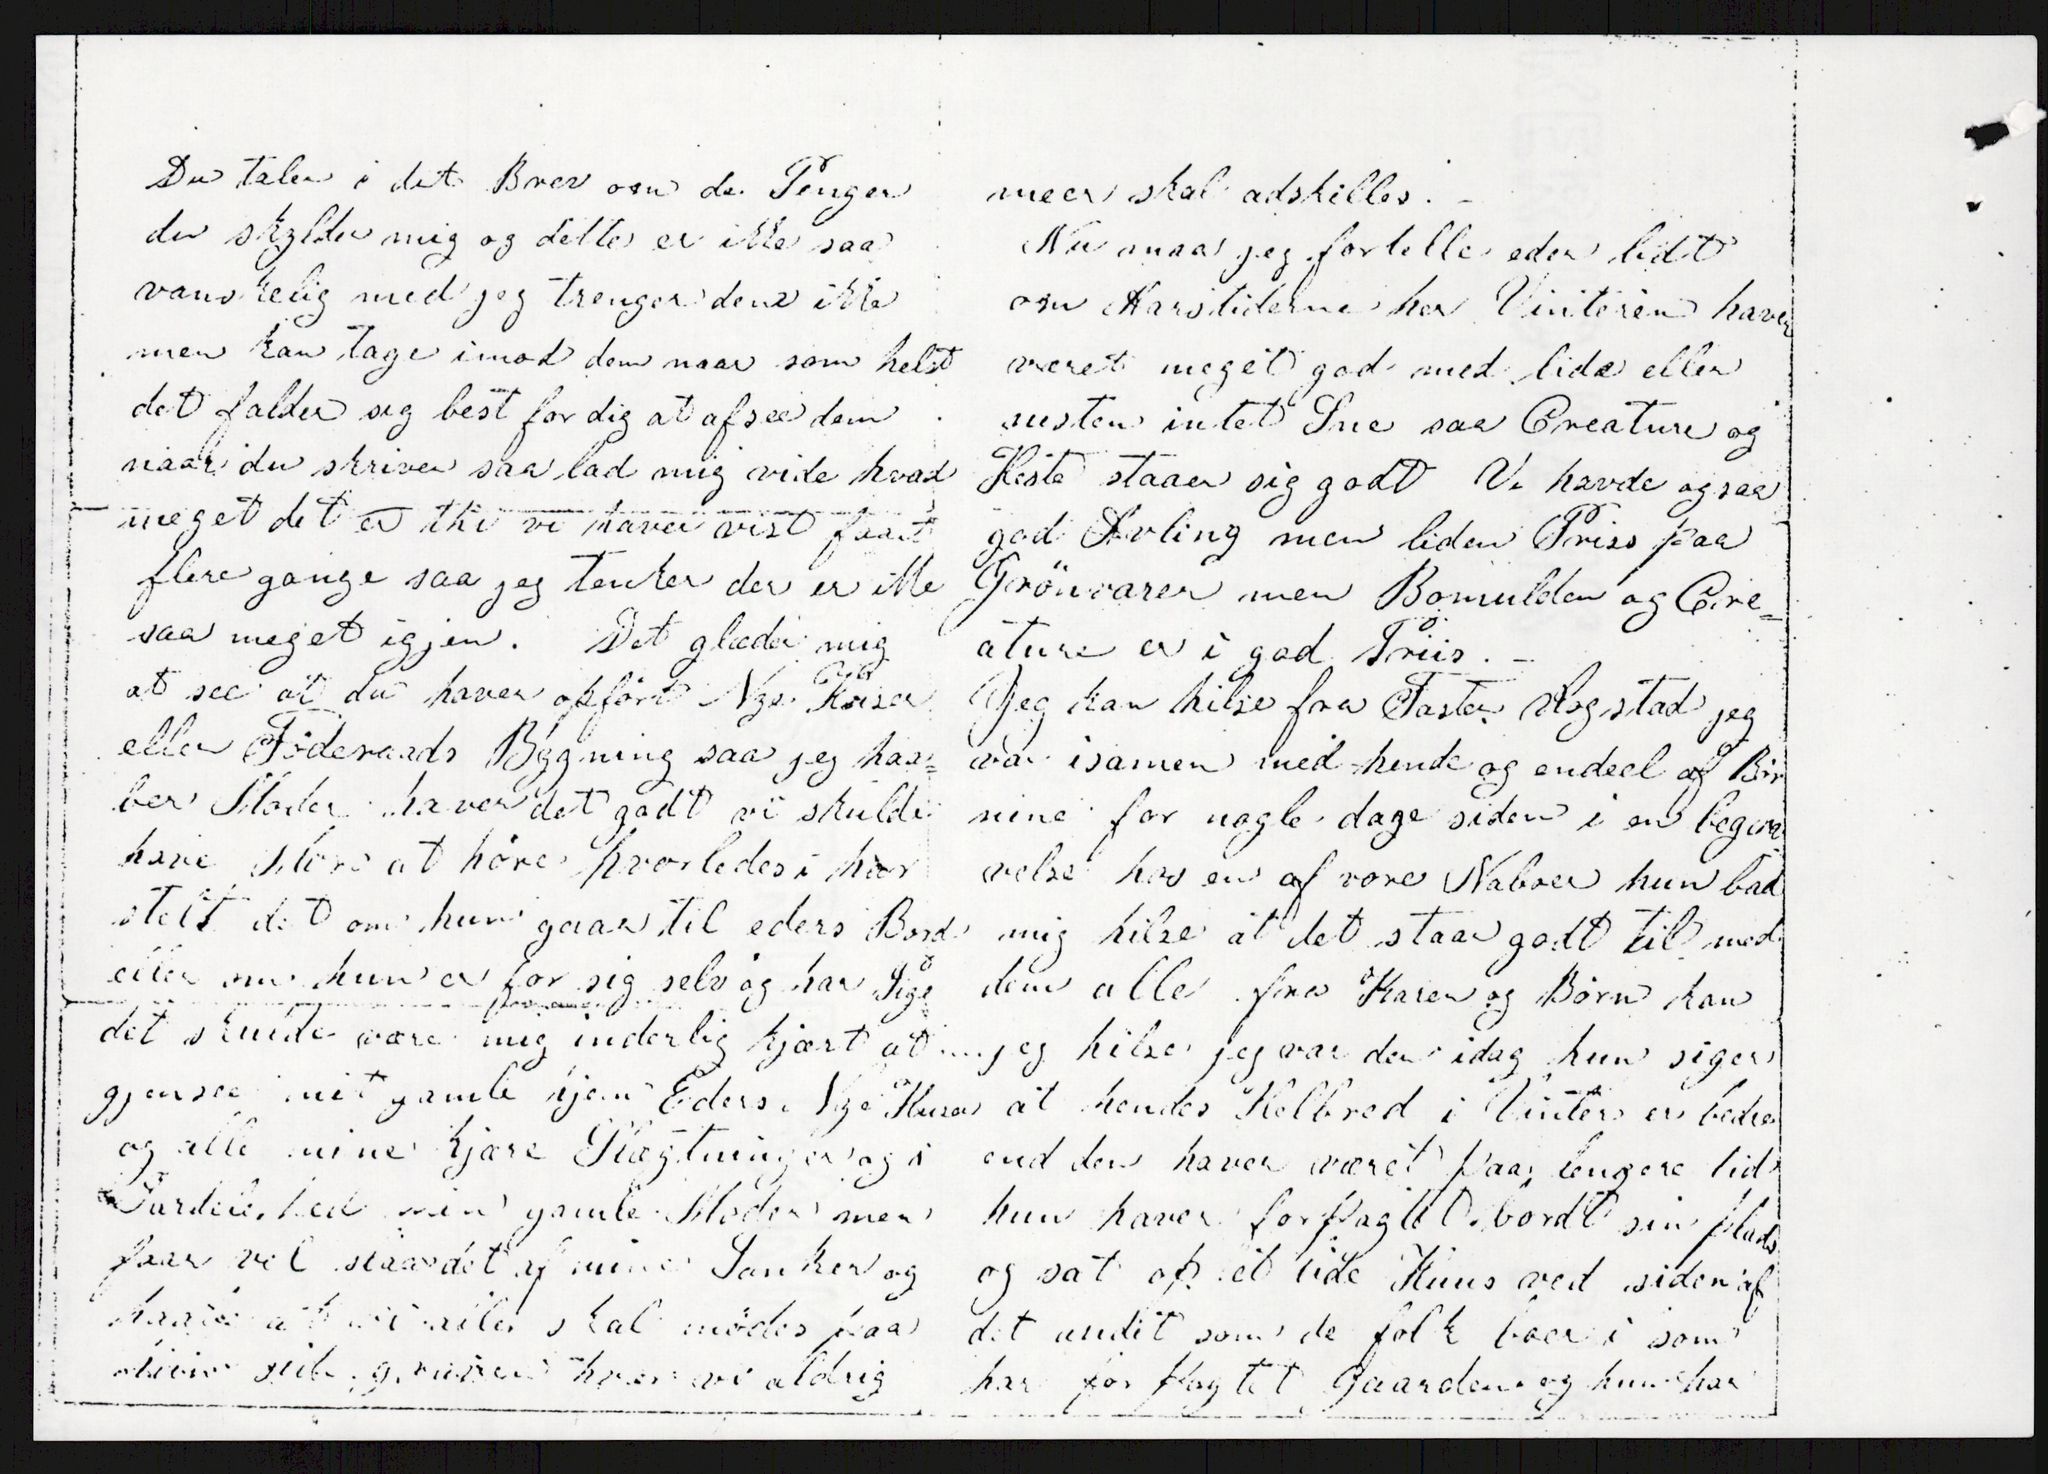 Du taler i dit Brev om de Penger
du skylder mig og dette er ikke saa
vanskelig med jeg trenger dem ikke
men kan tage imod dem naar som helst
det falder sig best for dig at afsee dem
naar du skriver saa lad mig vide hvad
meget det er thi vi haver vist faaet
flere gange saa jeg tenker der er ikke
saa meget igjen. Det glæder mig
at see at du haver opført Nye Huser
eller Föderaads Bygning saa jeg haa=
ber Moder haver det godt vi skulde
have More at höre hvorledes i har
stelt det om hun gaar til eders Bord
eller om hun er for sig selv og har Pige
det skulde være mig inderlig kjært at
gjensee mit gamle hjem Eders Nye Huser
og alle mine kjære Slægtninger og i
Særdeleshed min gamle Moder men
faar vel slaa det af mine Tanker og
haabe at vi alle skal mödes paa
hiin side graven hvor vi aldrig
meer skal adskilles. -
Nu maa jeg fortelle eder lidt
om Aarstiderne her Vinteren haver
været meget god med lide eller
nesten intet Sne saa Creature og
Heste staaer sig godt Vi havde ogsaa
god Avling men liden Priss paa
Grönvarer men Bomulden og Cre=
ature er i god Priis. -
Jeg kan hilse fra Taster Rogstad jeg
var isamen med hende og endeel af Bör
nine for nogle dage siden i en begra
velse hos en af vore Naboer hun bad
mig hilse at det staar godt til med
dem alle fra Karen og Börn kan
jeg hilse jeg var der idag hun siger
at hendes Helbred i Vinter er bedre
end den haver været paa lengere tid
hun haver forpagtet bordt sin plads
og sat op et lide Huus ved siden af
det andet som de folk boer i som
har forpagtet Gaarden og hun har